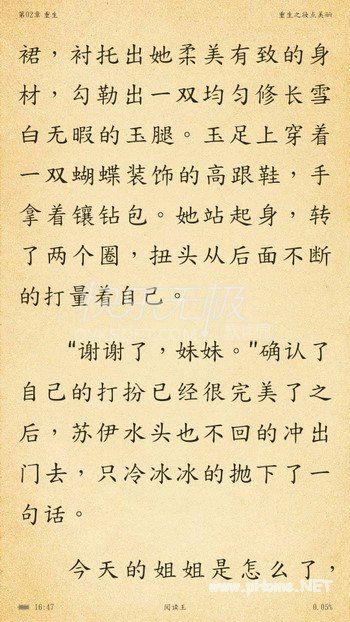 第02章 重生 重生之妆点美丽
裙，衬托出她柔美有致的身
材，勾勒出一双均匀修长雪
白无暇的玉腿。玉足上穿着
一双蝴蝶装饰的高跟鞋，手
拿着镶钻包。她站起身，转
了两个圈，扭头从后面不断
的打量着自己。
“谢谢了，妹妹。”确认了
自己的打扮已经很完美了之
后，苏伊水头也不回的冲出
门去，只冷冰冰的抛下了一
句话。
今天的姐姐是怎么了，
16:47 阅读王 0.05%